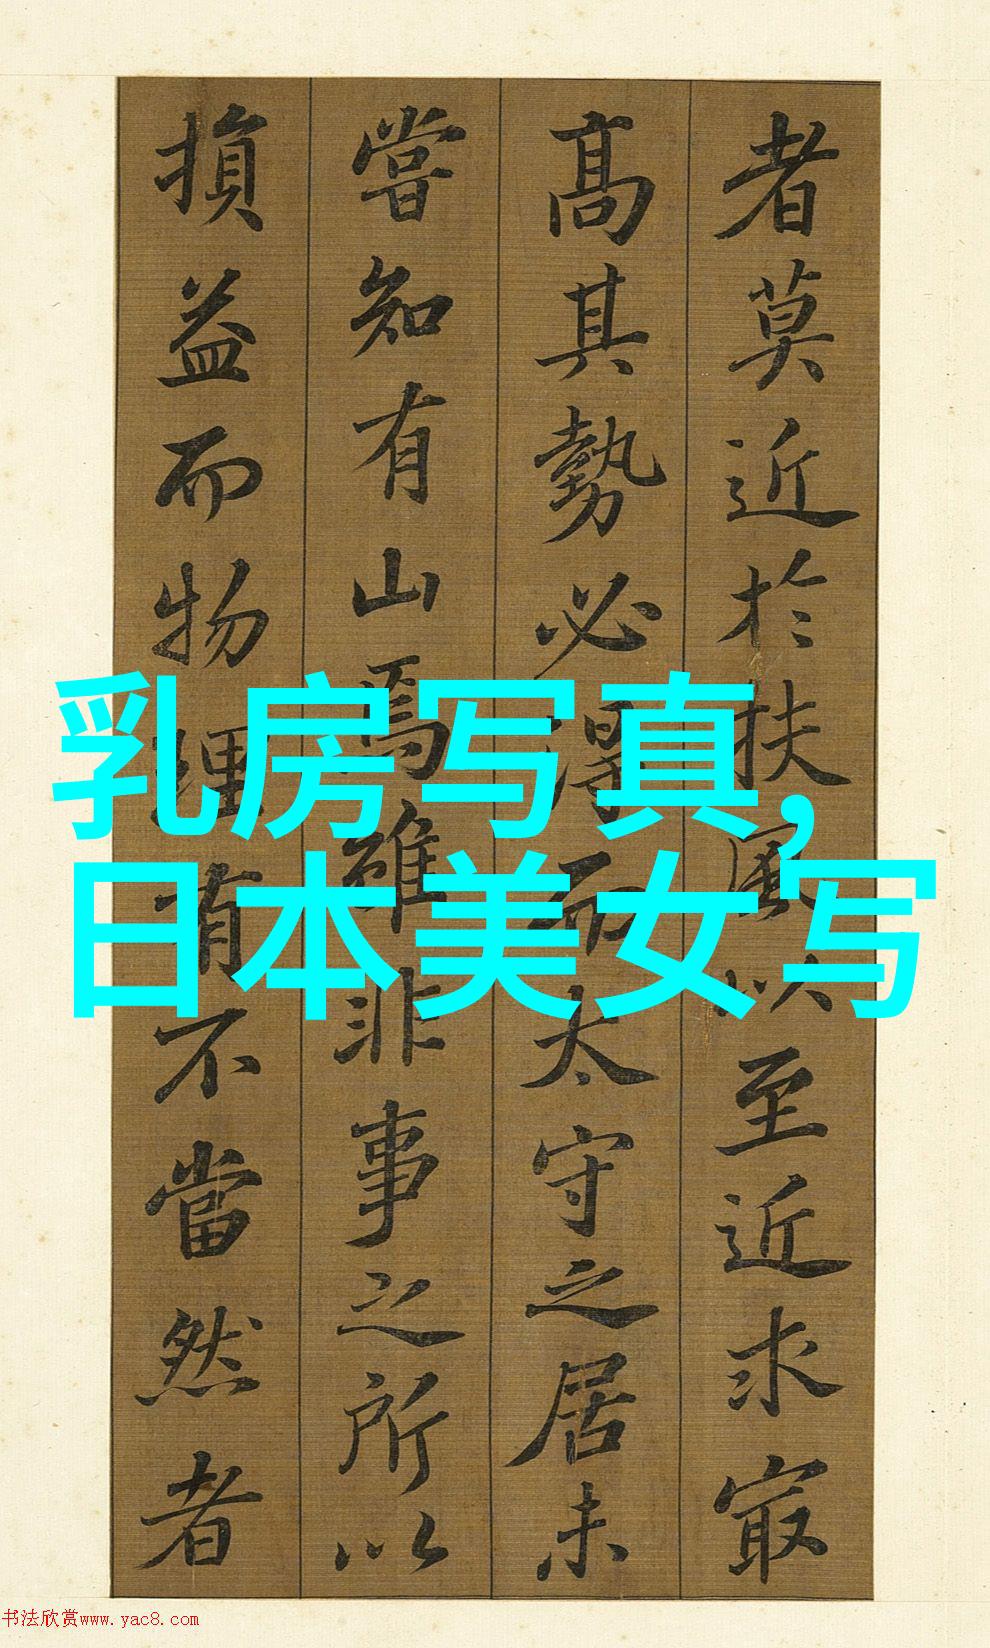 者莫近於扶風以至近求冣
高其勢必得而太守之居未
嘗知有山焉雖非事之所以
損益而物理有不當然者
乳房写真,
日本美女写
书法欣赏www.yac8.com